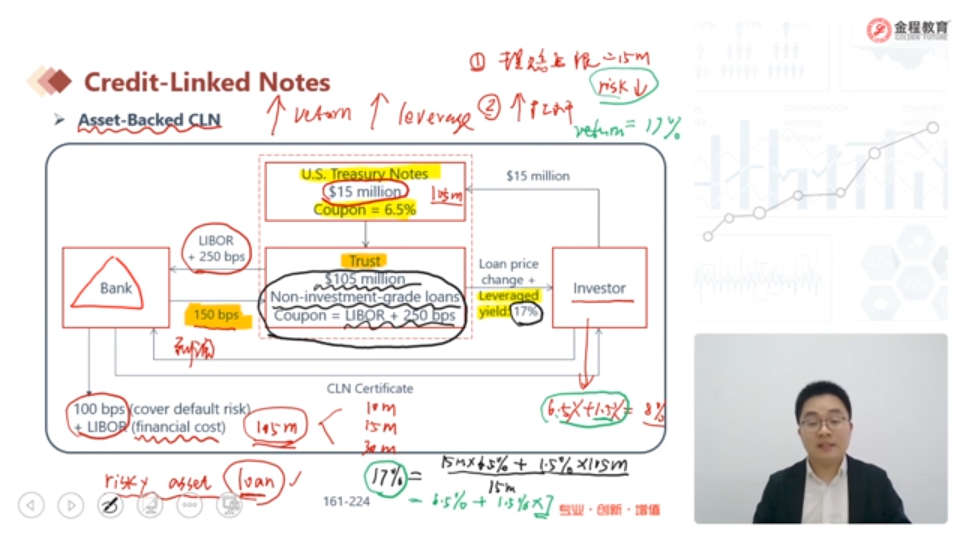 金程教育
GOLDEN FUTURE
① 理想上限=15m
risk↓
Credit-Linked Notes
Asset-Backed CLN
↑ return ↑ leverage ② ↑
return = 17%
U.S. Treasury Notes
$15 million
105m
Coupon = 6.5%
$15 million
LIBOR
+ 250 bps
Bank
150 bps
Trust
$105 million
Non-investment-grade loans
Coupon = LIBOR + 250 bps
Loan price
change +
Leveraged
yield: 17%
Investor
CLN Certificate
100 bps (cover default risk)
+ LIBOR (financial cost)
105m
10m
15m
30m
6.5% + 1.5% = 8%
risky asset (loan) ✓
17% = 15m×6.5% + 1.5%×105m
15m
= 6.5% + 1.5%×7
161-224
专业·创新·增值